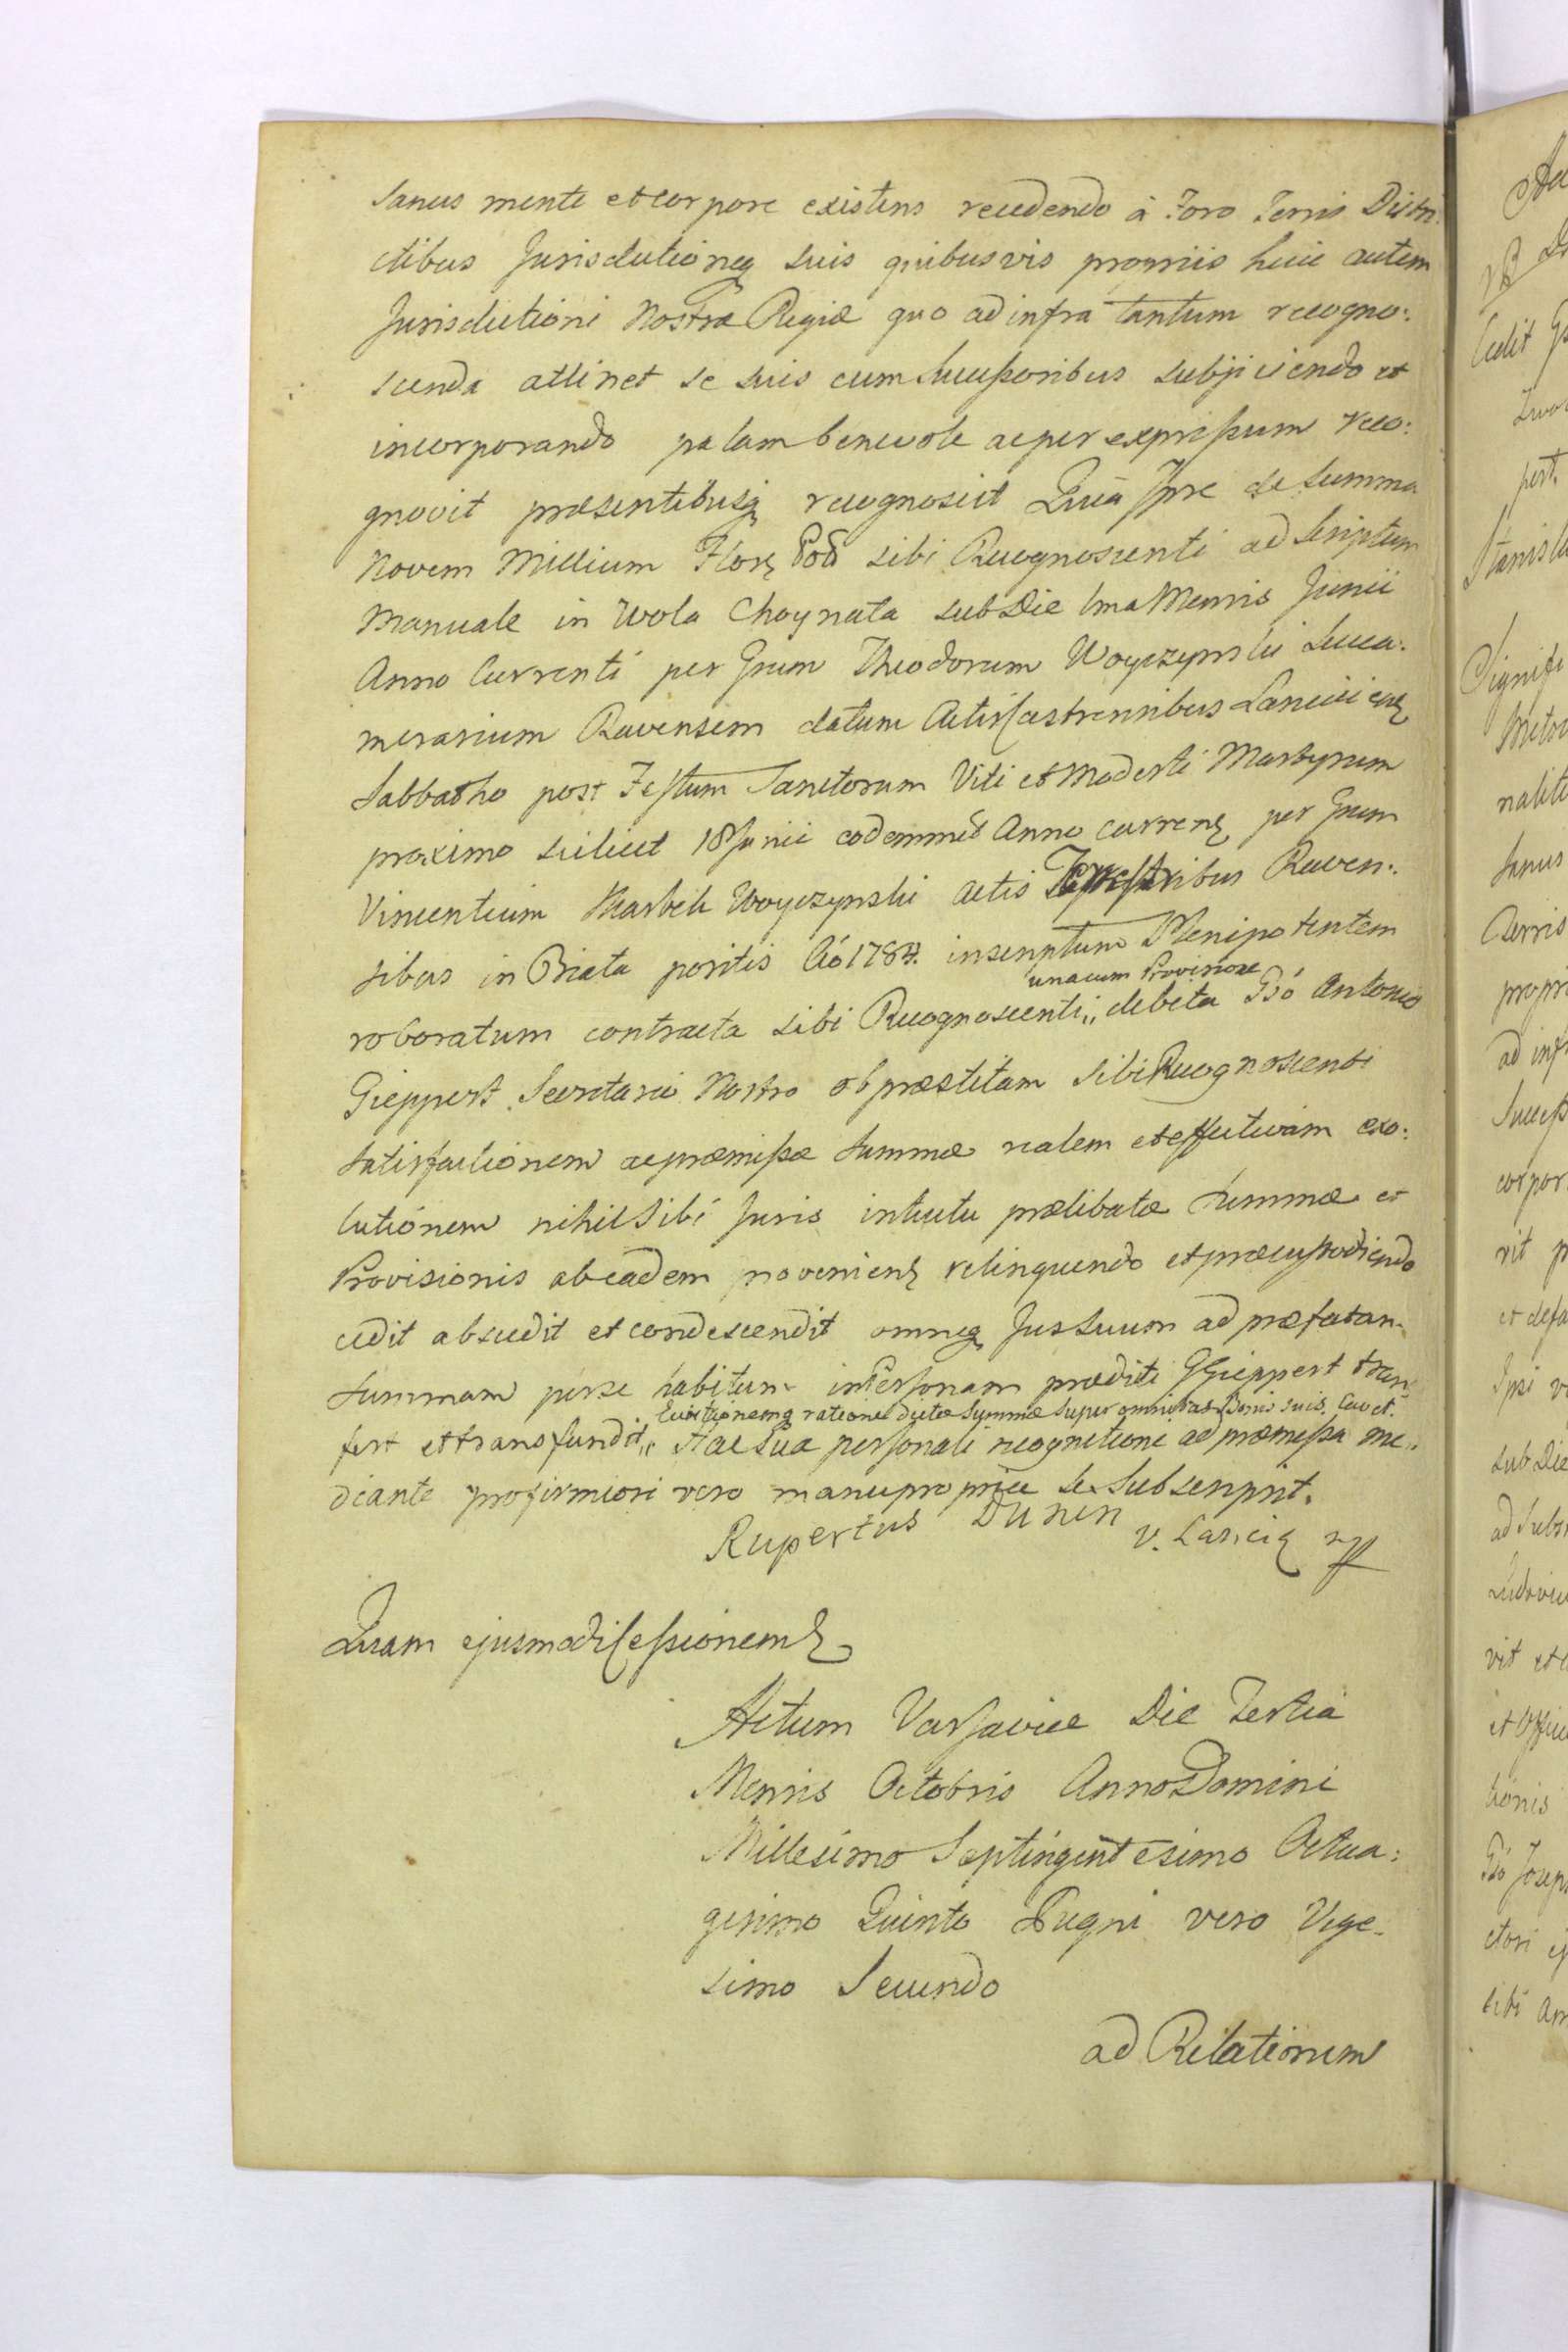 Sanus mente et corpore existens recedendo à Foro Terris Distri-
ctibus Jurisdictioneq suis quibusvis propriis huic autem
Jurisdictioni Nostræ Regiæ quo ad infra tantum recogno:
scenda attinet se suis cum Successoribus subjiciendo et
incorporando palam benevole ac per expressum reco:
gnovit præsentibusq recognoscit Quia Ipse de Summa
Novem Millium Flor Pol sibi Recognoscenti ad Scriptum
Manuale in Wola Choynata sub Die 1ma Mensis Junii
Anno Currenti per Gnum Theodorum Woyczynski Succa:
merarium Ravensem datum Actis Castrensibus Lancicien
Sabbatho post Festum Sanctorum Viti et Modesti Martyrum
proximo scilicet 18 Junii eodemmet Anno curren per Gnum
Vincentium Skarbek Woyczynski Actis Terrestribus Raven:
sibus in Biała positis Ao 1784. inscriptum Plenipotentem
unacum Provisione
roboratum contracta sibi Recognoscenti,, debita Gso Antonio
Gieppert Secretario Nostro ob præstitam sibi Recognoscenti
satisfactionem ac præmissæ Summæ realem et effectivam exo:
lutionem nihil sibi Juris intuitu prælibatæ Summæ et
Provisionis ab eadem provenien relinquendo et præcustodiendo
cedit abscedit et condescendit omneq Jus Suum ad præfatam
Summam per se habitum in Personam prædicti G Gieppert trans
Evictionemq ratione dictæ Summæ super omnibus Bonis suis. Cavet.
fert et transfundit,, Hac Sua personali recognitione ad præmissa me,,
diante pro firmiori vero manu propria se subscripsit.
Rupertus Dunin v. Lancic mp
Quam ejusmodi Cessionem
Actum Varsaviæ Die Tertia
Mensis Octobris Anno Domini
Millesimo Septingentesimo Octua:
gesimo Quinto Regni vero Vige-
simo Secundo
ad Relationem